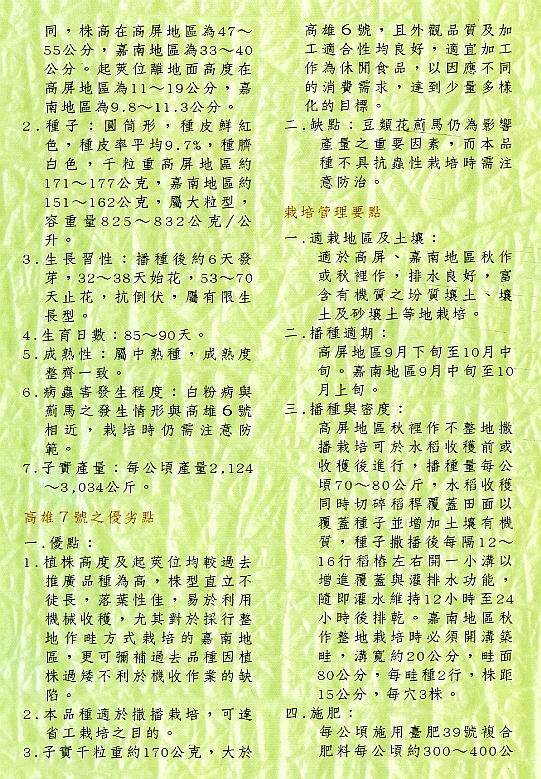 同，株高在高屏地區為47～
55公分，嘉南地區為33～40
公分。起莢位離地面高度在
高屏地區為11～19公分，嘉
南地區為9.8～11.3公分。
2.種子：圓筒形，種皮鮮紅
色，種皮率平均9.7%，種臍
白色，千粒重高屏地區約
171～177公克，嘉南地區約
151～162公克，屬大粒型，
容重量825～832公克/公
升。
3.生長習性：播種後約6天發
芽，32～38天始花，53～70
天止花，抗倒伏，屬有限生
長型。
4.生育日數：85～90天。
5.成熟性：屬中熟種，成熟度
整齊一致。
6.病蟲害發生程度：白粉病與
薊馬之發生情形與高雄6號
相近，栽培時仍需注意防
範。
7.子實產量：每公頃產量2,124
～3,034公斤。
高雄7號之優劣點
一.優點：
1.植株高度及起莢位均較過去
推廣品種為高，株型直立不
徒長，落葉性佳，易於利用
機械收穫，尤其對於採行整
地作畦方式栽培的嘉南地
區，更可彌補過去品種因植
株過矮不利於機收作業的缺
陷。
2.本品種適於撒播栽培，可達
省工栽培之目的。
3.子實千粒重約170公克，大於
高雄6號，且外觀品質及加
工適合性均良好，適宜加工
作為休閒食品，以因應不同
的消費需求，達到少量多樣
化的目標。
二.缺點：豆類花薊馬仍為影響
產量之重要因素，而本品
種不具抗蟲性栽培時需注
意防治。
栽培管理要點
一.適栽地區及土壤：
適於高屏、嘉南地區秋作
或秋裡作，排水良好，富
含有機質之坋質壤土、壤
土及砂壤土等地栽培。
二.播種適期：
高屏地區9月下旬至10月中
旬。嘉南地區9月中旬至10
月上旬。
三.播種與密度：
高屏地區秋裡作不整地撒
播栽培可於水稻收穫前或
收穫後進行，播種量每公
頃70～80公斤，水稻收穫
同時切碎稻稈覆蓋田面以
覆蓋種子並增加土壤有機
質，種子撒播後每隔12～
16行稻樁左右開一小溝以
增進覆蓋與灌排水功能，
隨即灌水維持12小時至24
小時後排乾。嘉南地區秋
作整地栽培時必須開溝築
畦，溝寬約20公分，畦面
80公分，每畦種2行，株距
15公分，每穴3株。
四.施肥：
每公頃施用臺肥39號複合
肥料每公頃約300～400公